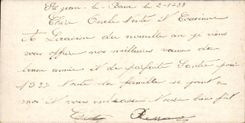 St Jean - le - Baux le 2-1-33
Cher Oncle Tante et Cousine
A l'occasion du nouvelle an je viens
vous offrir nos meilleurs vœux de
bonne année et de parfaite santé pour
1933 Toute la famille se joint à
moi et vous embrasse